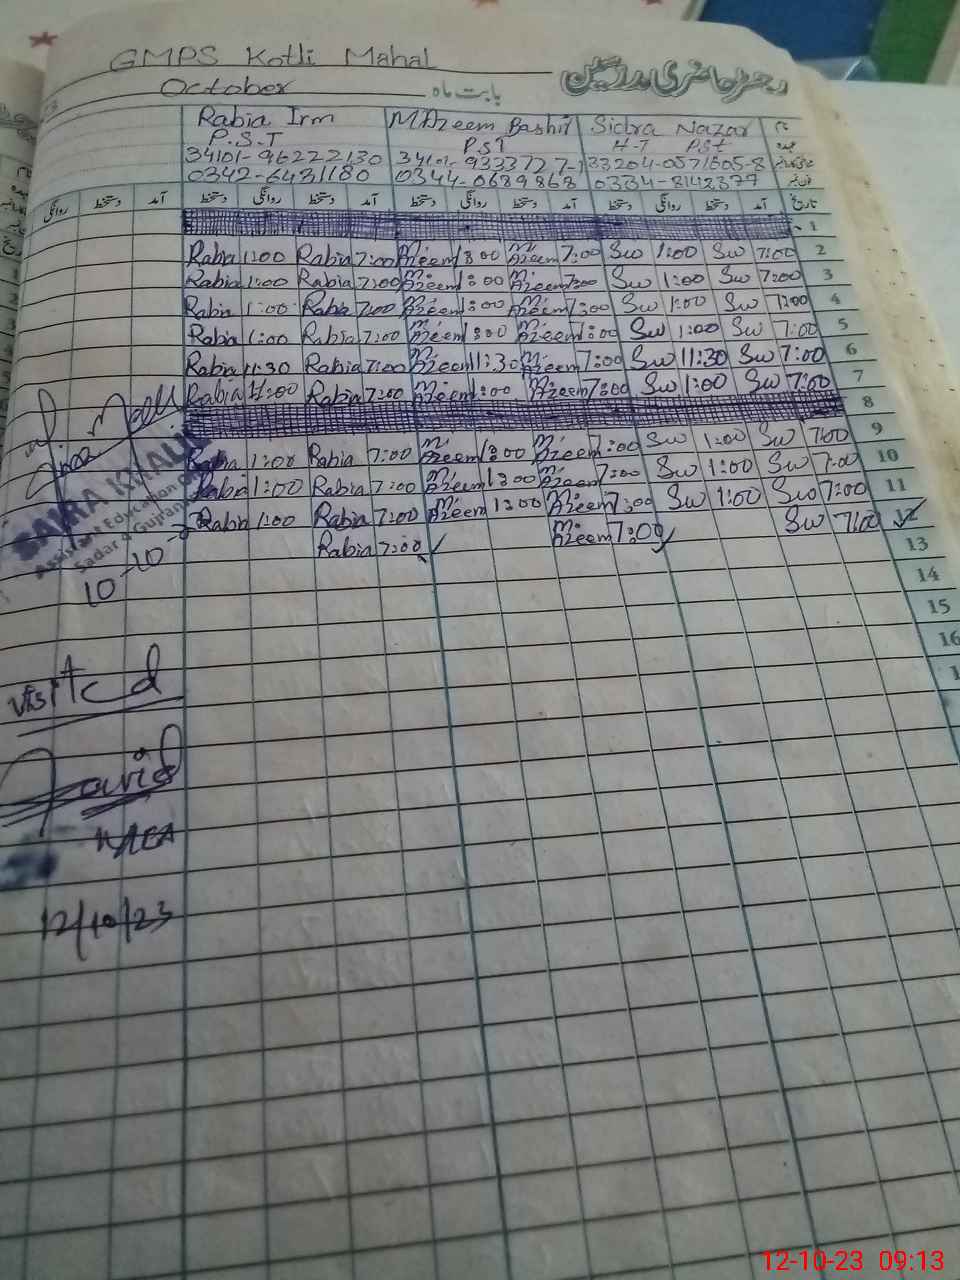 GMPS Kotli Mahal
رجسٹر حاضری مدرسین
October بابت ماہ
Rabia Irm M Azeem Bashir Sidra Nazar نام
P.S.T PST H-T PSt عہدہ
34101-96222130 34101-9333727-1 33204-0571605-8
0342-6431180 0344-0689868 0334-8142377
روانگی دستخط آمد دستخط روانگی دستخط آمد دستخط روانگی دستخط آمد دستخط روانگی دستخط آمد تاریخ
1
Rabia 1:00 Rabia 7:00 M. Azeem 1:00 M. Azeem 7:00 Sw 1:00 Sw 7:00 2
Rabia 1:00 Rabia 7:00 M. Azeem 1:00 M. Azeem 7:00 Sw 1:00 Sw 7:00 3
Rabia 1:00 Rabia 7:00 M. Azeem 1:00 M. Azeem 7:00 Sw 1:00 Sw 7:00 4
Rabia 1:00 Rabia 7:00 M. Azeem 1:00 M. Azeem Sw 1:00 Sw 7:00 5
Rabia 11:30 Rabia 7:00 M. Azeem 11:30 M. Azeem 7:00 Sw 11:30 Sw 7:00 6
Rabia 1:00 Rabia 7:00 M. Azeem 1:00 M. Azeem 7:00 Sw 1:00 Sw 7:00 7
8
Rabia 1:00 Rabia 7:00 M. Azeem 1:00 M. Azeem 7:00 Sw 1:00 Sw 7:00 9
Rabia 1:00 Rabia 7:00 M. Azeem 1:00 M. Azeem 7:00 Sw 1:00 Sw 7:00 10
Rabia 1:00 Rabia 7:00 M. Azeem 1:00 M. Azeem 7:00 Sw 1:00 Sw 7:00 11
Rabia 7:00 M. Azeem 7:00 Sw 7:00 12
13
14
15
16
SAIRA KHALID
Assistant Education
Sadar Gujranwala
10-10-
visited
Javid
12/10/23
12-10-23 09:13